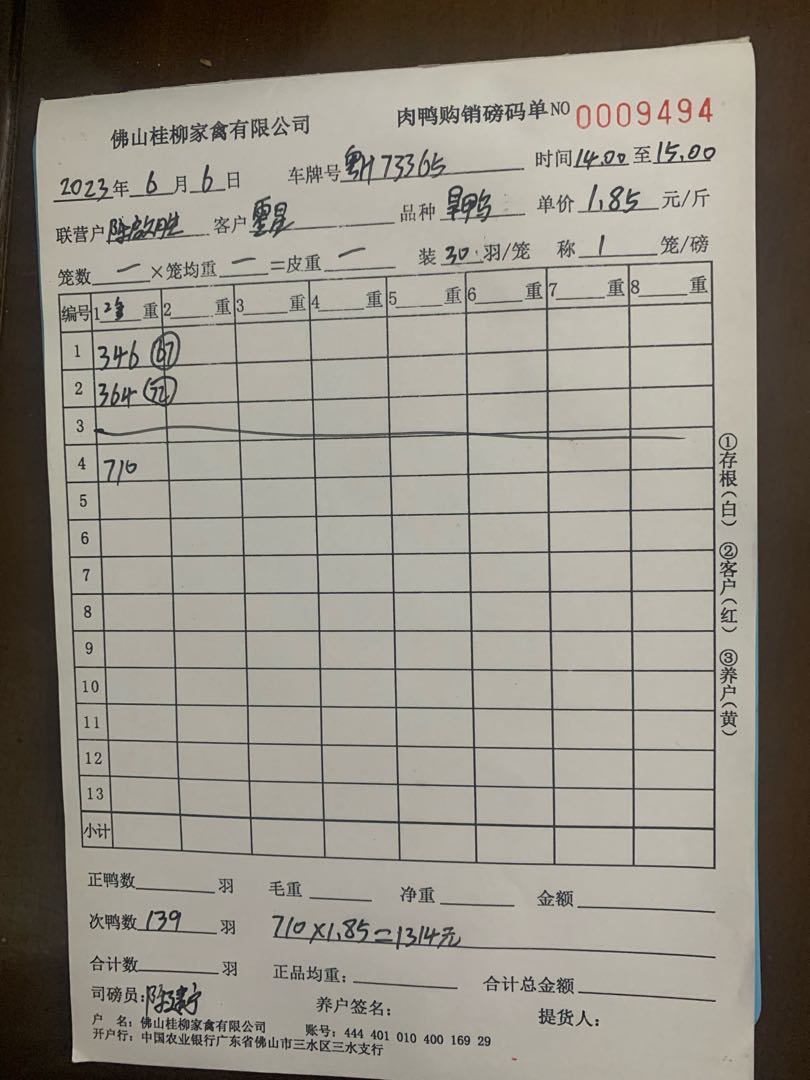 佛山桂柳家禽有限公司 肉鸭购销磅码单NO 0009494
2023年 6 月 6 日 车牌号 粤H73365 时间14.00至15.00
联营户 客户 品种 单价 1.85 元/斤
笼数 一 ×笼均重 一 =皮重 一 装 30 羽/笼 称 1 笼/磅
编号 1 重 2 重 3 重 4 重 5 重 6 重 7 重 8 重
1 346 67
2 364 72
3
4 710
5
6
7
8
9
10
11
12
13
小计
①存根(白) ②客户(红) ③养户(黄)
正鸭数 羽 毛重 净重 金额
次鸭数 139 羽 710×1.85=1314元
合计数 羽 正品均重: 合计总金额
司磅员: 养户签名: 提货人:
户 名:佛山桂柳家禽有限公司 账号:444 401 010 400 169 29
开户行:中国农业银行广东省佛山市三水区三水支行